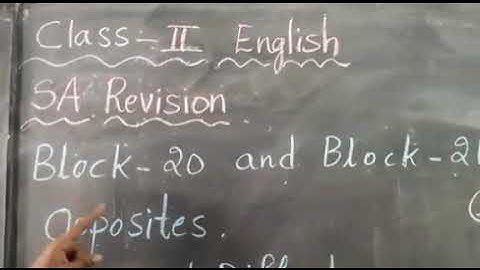 Class-II English
SA Revision
Block-20 and Block-21
Opposites.